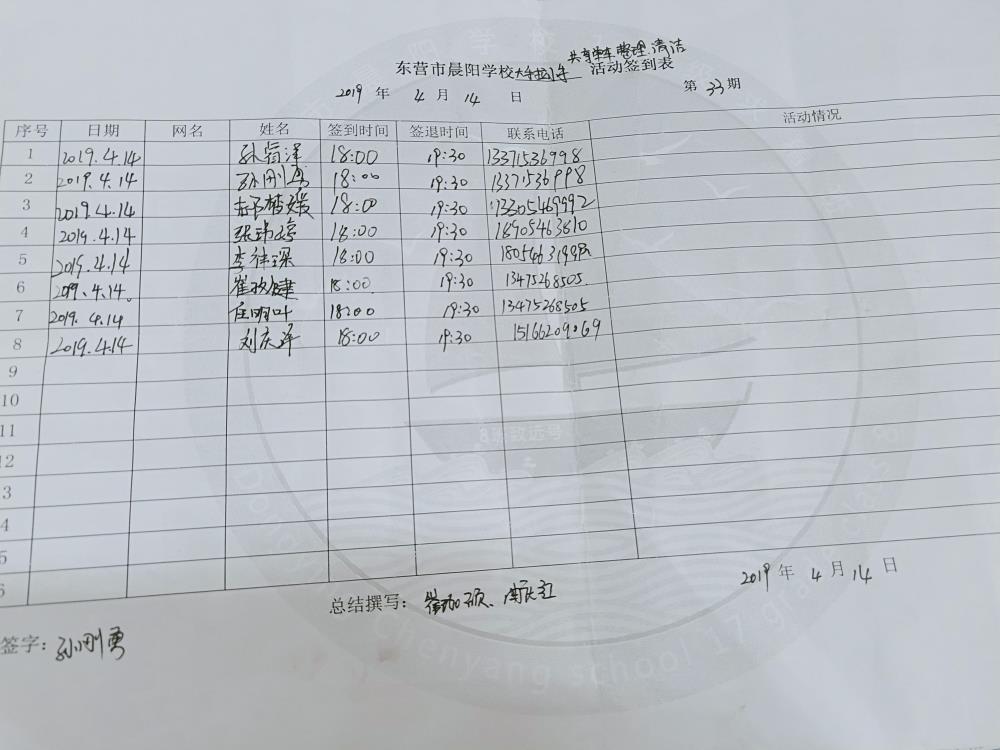 共享单车整理、清洁
东营市晨阳学校大手拉小手 活动签到表
2019 年 4 月 14 日 第 33 期
序号 日期 网名 姓名 签到时间 签退时间 联系电话 活动情况
1 2019.4.14 孙 泽 18:00 19:30 13371536998
2 2019.4.14 孙刚勇 18:00 19:30 13371536998
3 2019.4.14 18:00 19:30 13305469992
4 2019.4.14 张玮婷 18:00 19:30 18905463810
5 2019.4.14 李律琛 18:00 19:30
6 2019.4.14. 崔 18:00 19:30 13475268505.
7 2019.4.14 任明叶 18:00 19:30 13475268505
8 2019.4.14 刘庆泽 18:00 19:30 15166209069
9
10
11
12
3
4
5
6
8班致远号
2019 年 4 月 14 日
总结撰写:
签字:孙刚勇
Chenyang school 17 grade class